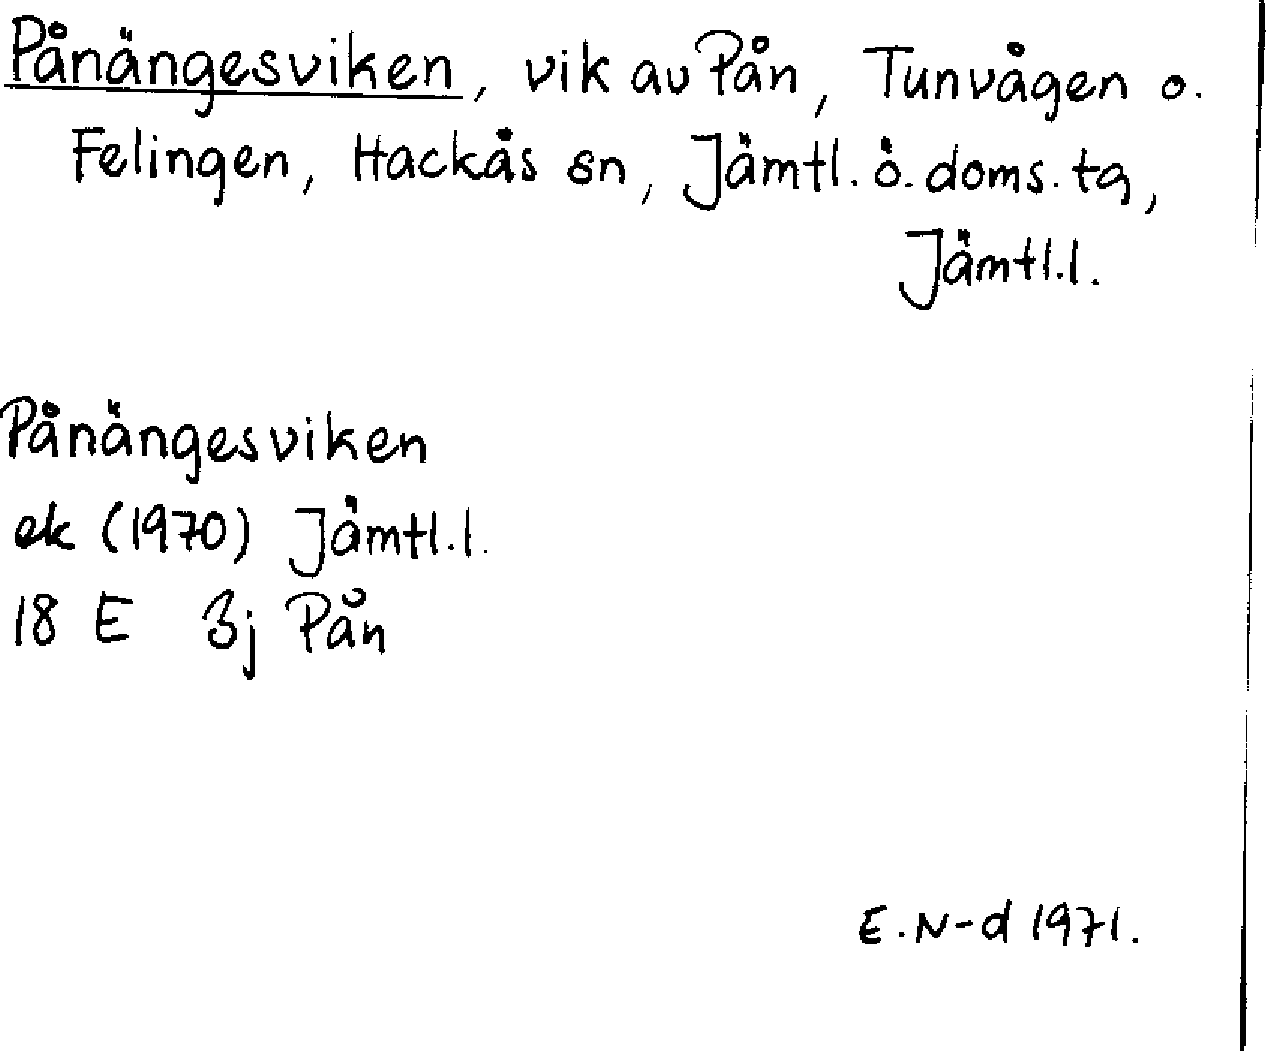 Pånängesviken, vik av Pån, Tunvågen o.
Felingen, Hackås sn, Jämtl. ö. doms. tg,
Jämtl.l.
Pånängesviken
ek (1970) Jämtl.l.
18 E 3j Pån
E.N-d 1971.